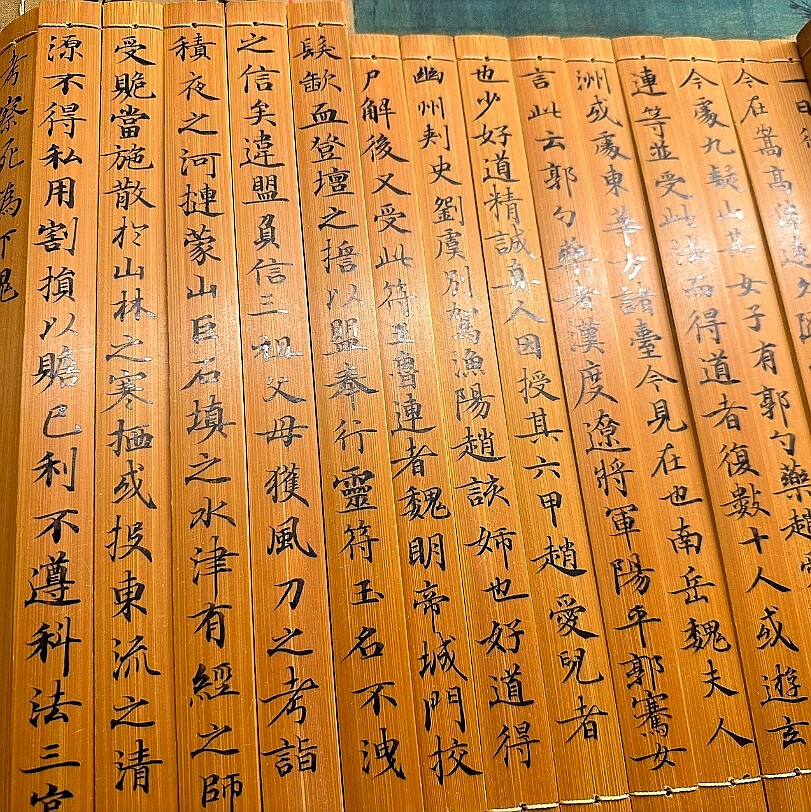 今在嵩高偉達久
今處九疑山其女子有郭勺藥趙愛
連等並受此法而得道者復數十人或遊玄
洲或處東華方諸臺今見在也南岳魏夫人
言此云郭勺藥者漢度遼將軍陽平郭騫女
也少好道精誠真人因授其六甲趙愛兒者
幽州刾史劉虞別駕漁陽趙該姉也好道得
尸解後又受此符王魯連者魏明帝城門校
髮歃血登壇之誓以盟奉行靈符玉名不洩
之信矣違盟負信三祖父母獲風刀之考詣
積夜之河摙蒙山巨石填之水津有經之師
受貺當施散於山林之寒栖或投東流之清
源不得私用割損以贍己利不遵科法三官
考察死為下鬼